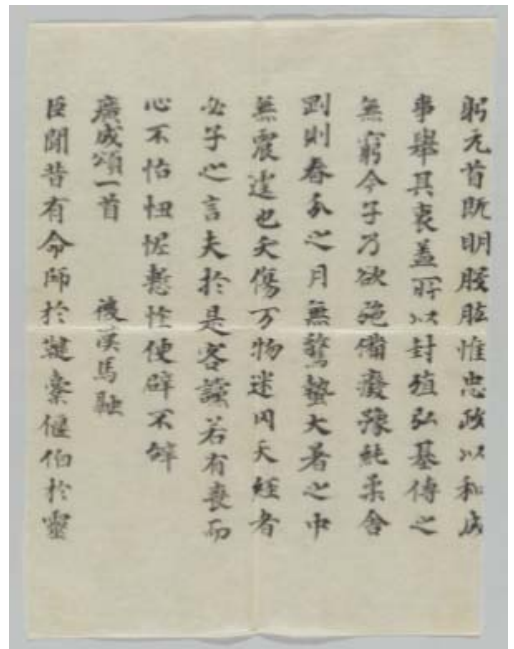 躬元首既明股肱惟忠政以和成
事舉其衷蓋所以封殖弘基傳之
無窮今子乃欲弛備癈豫純柔舍
剛則春分之月無驚蟄大暑之中
無震也夭傷万物迷罔天經者
必子之言夫於是客議若有喪而
心不怡忸怩慙便辟不辞
廣成頌一首 後漢馬融
臣聞昔有命師於鞬櫜偃伯於靈